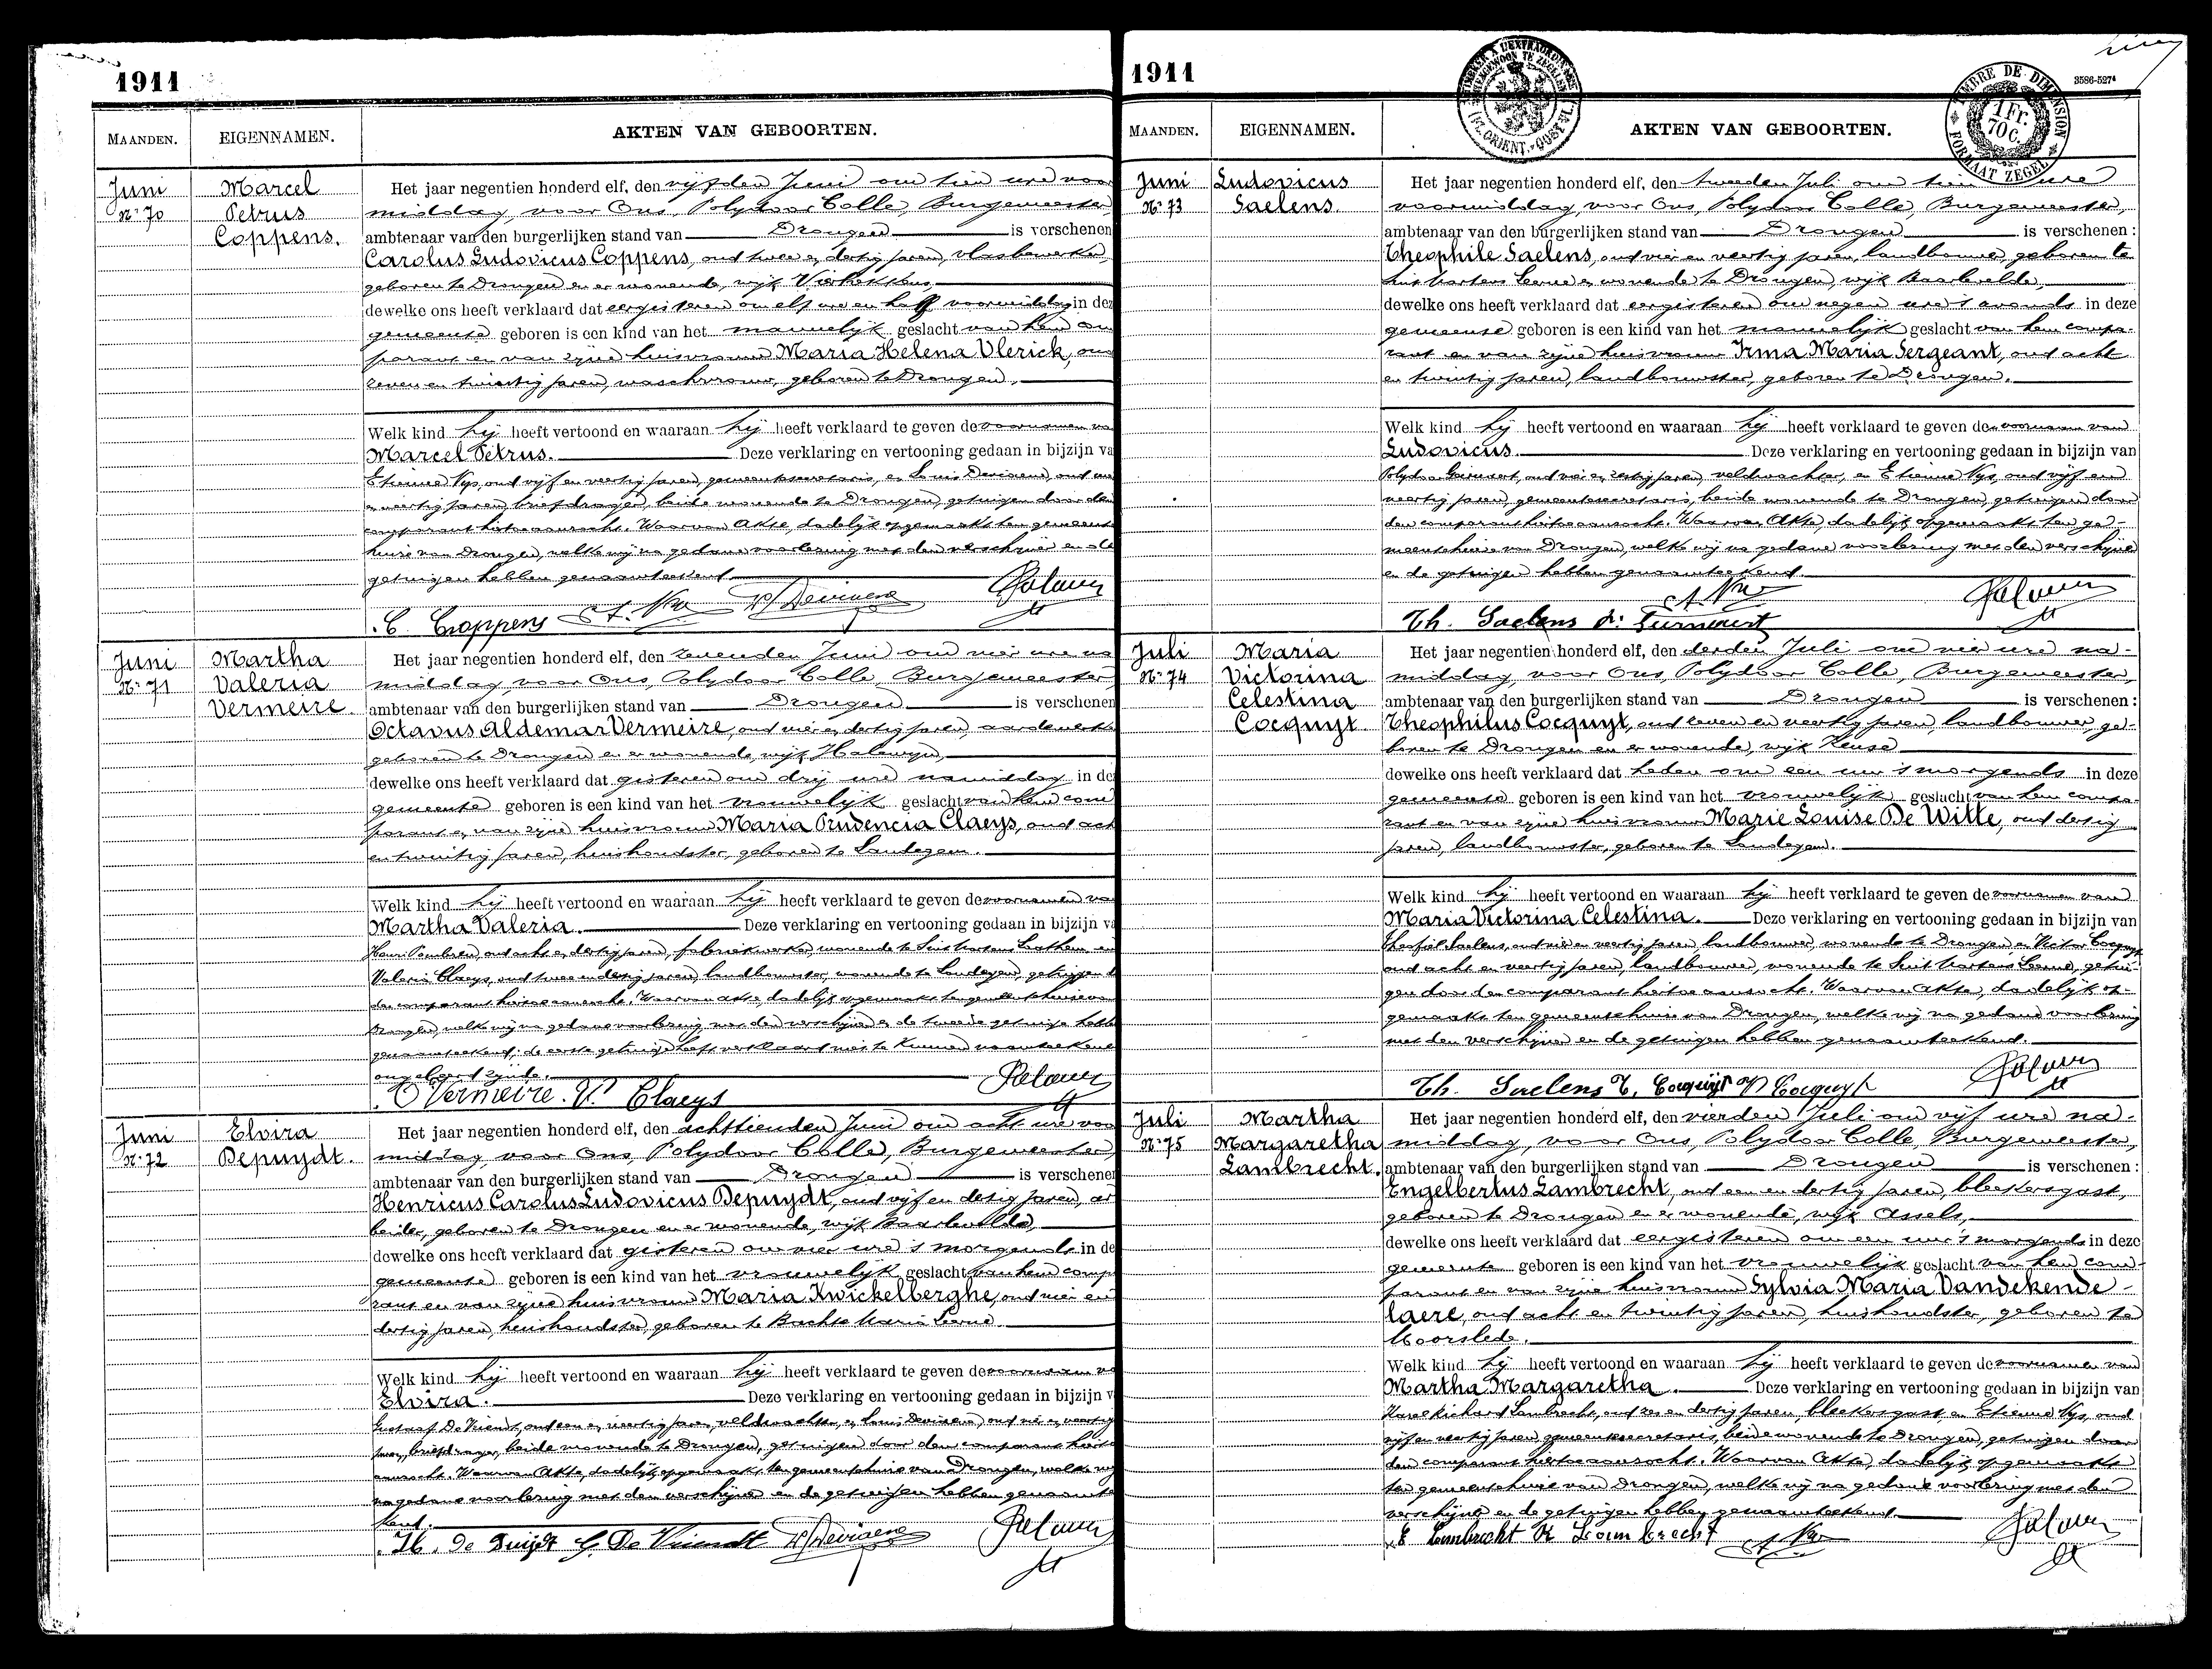 1911
MAANDEN. EIGENNAMEN. AKTEN VAN GEBOORTEN.
Juni
Nr 70
Marcel
Petrus
Coppens.
Het jaar negentien honderd elf, den vijfden Juni om tien ure voor
middag, voor Ons, Polydoor Colle, Burgemeester,
ambtenaar van den burgerlijken stand van Drongen is verschenen
Carolus Ludovicus Coppens, oud twee en dertig jaren, vlasbewerker,
geboren te Drongen en er wonende, wijk
dewelke ons heeft verklaard dat eergisteren om elf ure en half voormiddag in deze
gemeente geboren is een kind van het mannelijk geslacht van hem com
parant en van zijne huisvrouw Maria Helena Vlerick, oud
zeven en twintig jaren, waschvrouw, geboren te Drongen.
Welk kind hij heeft vertoond en waaraan hij heeft verklaard te geven de voornamen van
Marcel Petrus. Deze verklaring en vertooning gedaan in bijzijn va
Etienne Nys, oud vijf en veertig jaren, gemeentesecretaris, en Louis Devisere, oud
en veertig jaren, briefdrager, beide wonende te Drongen, getuigen door den
comparant hiertoe aanzocht. Waarvan Akte, dadelijk opgemaakt ten gemeente
huize van Drongen, welke wij na gedane voorlezing met den verschijner en de
getuigen hebben genaamteekend.
C. Coppens
Juni
Nr 71
Martha
Valeria
Vermeire.
Het jaar negentien honderd elf, den zevenden Juni om vier ure na
middag, voor Ons, Polydoor Colle, Burgemeester
ambtenaar van den burgerlijken stand van Drongen is verschenen
Octavus Aldemar Vermeire, oud vier en dertig jaren, aardewerker
geboren te Drongen en er wonende, wijk Halewijn,
dewelke ons heeft verklaard dat gisteren om drij ure namiddag in de
gemeente geboren is een kind van het vrouwelijk geslacht van hem com
parant en van zijne huisvrouw Maria Prudencia Claeys, oud acht
en twintig jaren, huishoudster, geboren te Landegem.
Welk kind hij heeft vertoond en waaraan hij heeft verklaard te geven de voornamen va
Martha Valeria. Deze verklaring en vertooning gedaan in bijzijn va
oud acht en dertig jaren, fabriekwerker, wonende te Sint Martens Leathem en
Valerie Claeys, oud twee en dertig jaren, landbouwster, wonende te Landegem, getuigen
den comparant hiertoe aanzocht. Waarvan akte dadelijk opgemaakt ten gemeentehuize van
Drongen, welke wij na gedane voorlezing met den verschijner en de tweede getuige hebben
genaamteekend; de eerste getuige heeft verklaard niet te kunnen naamteekenen
ongeleerd zijnde.
O Vermeire. V. Claeys
Juni
Nr 72
Elvira
Depuydt.
Het jaar negentien honderd elf, den achttienden Juni om acht ure voor
middag, voor Ons, Polydoor Colle, Burgemeester,
ambtenaar van den burgerlijken stand van Drongen is verschenen
Henricus Carolus Ludovicus Depuydt, oud vijf en dertig jaren, ar
beider, geboren te Drongen en er wonende, wijk Baarlevelde,
dewelke ons heeft verklaard dat gisteren om vier ure 's morgends in de
gemeente geboren is een kind van het vrouwelijk geslacht van hem compa
rant en van zijne huisvrouw Maria Zwickelberghe, oud vier en
dertig jaren, huishoudster, geboren te Bachte Maria Leerne.
Welk kind hij heeft vertoond en waaraan hij heeft verklaard te geven de voornaam va
Elvira. Deze verklaring en vertooning gedaan in bijzijn v
Gustaaf De Vriendt, oud een en veertig jaren, veldwachter, en Louis Devisere, oud vier en veertig
jaren, briefdrager, beide wonende te Drongen, getuigen door den comparant hiertoe
aanzocht. Waarvan Akte, dadelijk opgemaakt ten gemeentehuize van Drongen, welke wij
na gedane voorlezing met den verschijner en de getuigen hebben genaamtee
kend.
H. De Puijdt G. De Vriendt
1911
3586-527⁴
TIMBRE DE DIMENSION
1 Fr.
70 C.
FORMAAT ZEGEL
MAANDEN. EIGENNAMEN. AKTEN VAN GEBOORTEN.
Juni
Nr 73
Ludovicus
Saelens.
Het jaar negentien honderd elf, den tweeden Juli om tien ure
voormiddag, voor Ons, Polydoor Colle, Burgemeester,
ambtenaar van den burgerlijken stand van Drongen is verschenen:
Theophile Saelens, oud vier en veertig jaren, landbouwer, geboren te
Sint Martens Leerne en wonende te Drongen, wijk Baarlevelde,
dewelke ons heeft verklaard dat eergisteren om negen ure 's avonds in deze
gemeente geboren is een kind van het mannelijk geslacht van hem compa-
rant en van zijne huisvrouw Irma Maria Sergeant, oud acht
en twintig jaren, landbouwster, geboren te Drongen.
Welk kind hij heeft vertoond en waaraan hij heeft verklaard te geven de voornaam van
Ludovicus. Deze verklaring en vertooning gedaan in bijzijn van
Polydoor oud vier en zestig jaren, veldwachter, en Etienne Nys, oud vijf en
veertig jaren, gemeentesecretaris, beide wonende te Drongen, getuigen door
den comparant hiertoe aanzocht. Waarvan Akte, dadelijk opgemaakt ten ge-
meentehuize van Drongen, welke wij na gedane voorlezing met den verschijner
en de getuigen hebben genaamteekend.
Th. Saelens
Juli
Nr 74
Maria
Victorina
Celestina
Cocquyt
Het jaar negentien honderd elf, den derden Juli om vier ure na-
middag, voor Ons, Polydoor Colle, Burgemeester,
ambtenaar van den burgerlijken stand van Drongen is verschenen:
Theophilus Cocquyt, oud zeven en veertig jaren, landbouwer, ge-
boren te Drongen en er wonende, wijk Keuze
dewelke ons heeft verklaard dat heden om een uur 's morgends in deze
gemeente geboren is een kind van het vrouwelijk geslacht van hem compa-
rant en van zijne huisvrouw Marie Louise De Witte, oud dertig
jaren, landbouwster, geboren te Landegem.
Welk kind hij heeft vertoond en waaraan hij heeft verklaard te geven de voornamen van
Maria Victorina Celestina. Deze verklaring en vertooning gedaan in bijzijn van
Theofiel Saelens, oud vier en veertig jaren, landbouwer, wonende te Drongen en Victor Cocquyt
oud acht en veertig jaren, landbouwer, wonende te Sint Martens Leerne, getui-
gen door den comparant hiertoe aanzocht. Waarvan Akte, dadelijk op-
gemaakt ten gemeentehuize van Drongen, welke wij na gedane voorlezing
met den verschijner en de getuigen hebben genaamteekend.
Th. Saelens T. Cocquijt V Cocquyt
Juli
Nr 75
Martha
Margaretha
Lambrecht.
Het jaar negentien honderd elf, den vierden Juli om vijf ure na-
middag, voor Ons, Polydoor Colle, Burgemeester,
ambtenaar van den burgerlijken stand van Drongen is verschenen:
Engelbertus Lambrecht, oud een en dertig jaren, bleekersgast,
geboren te Drongen en er wonende, wijk Assels,
dewelke ons heeft verklaard dat eergisteren om een uur 's morgends in deze
gemeente geboren is een kind van het vrouwelijk geslacht van hem com-
parant en van zijne huisvrouw Sylvia Maria Vandekende-
laere, oud acht en twintig jaren, huishoudster, geboren te
Moorslede.
Welk kind hij heeft vertoond en waaraan hij heeft verklaard te geven de voornamen van
Martha Margaretha. Deze verklaring en vertooning gedaan in bijzijn van
Karel Richard Lambrecht, oud zes en dertig jaren, bleekersgast, en Etienne Nys, oud
vijf en veertig jaren, gemeentesecretaris, beide wonende te Drongen, getuigen door
den comparant hiertoe aanzocht. Waarvan Akte, dadelijk opgemaakt
ten gemeentehuize van Drongen, welke wij na gedane voorlezing met den
verschijner en de getuigen hebben genaamteekend.
E Lambrecht K Lambrecht